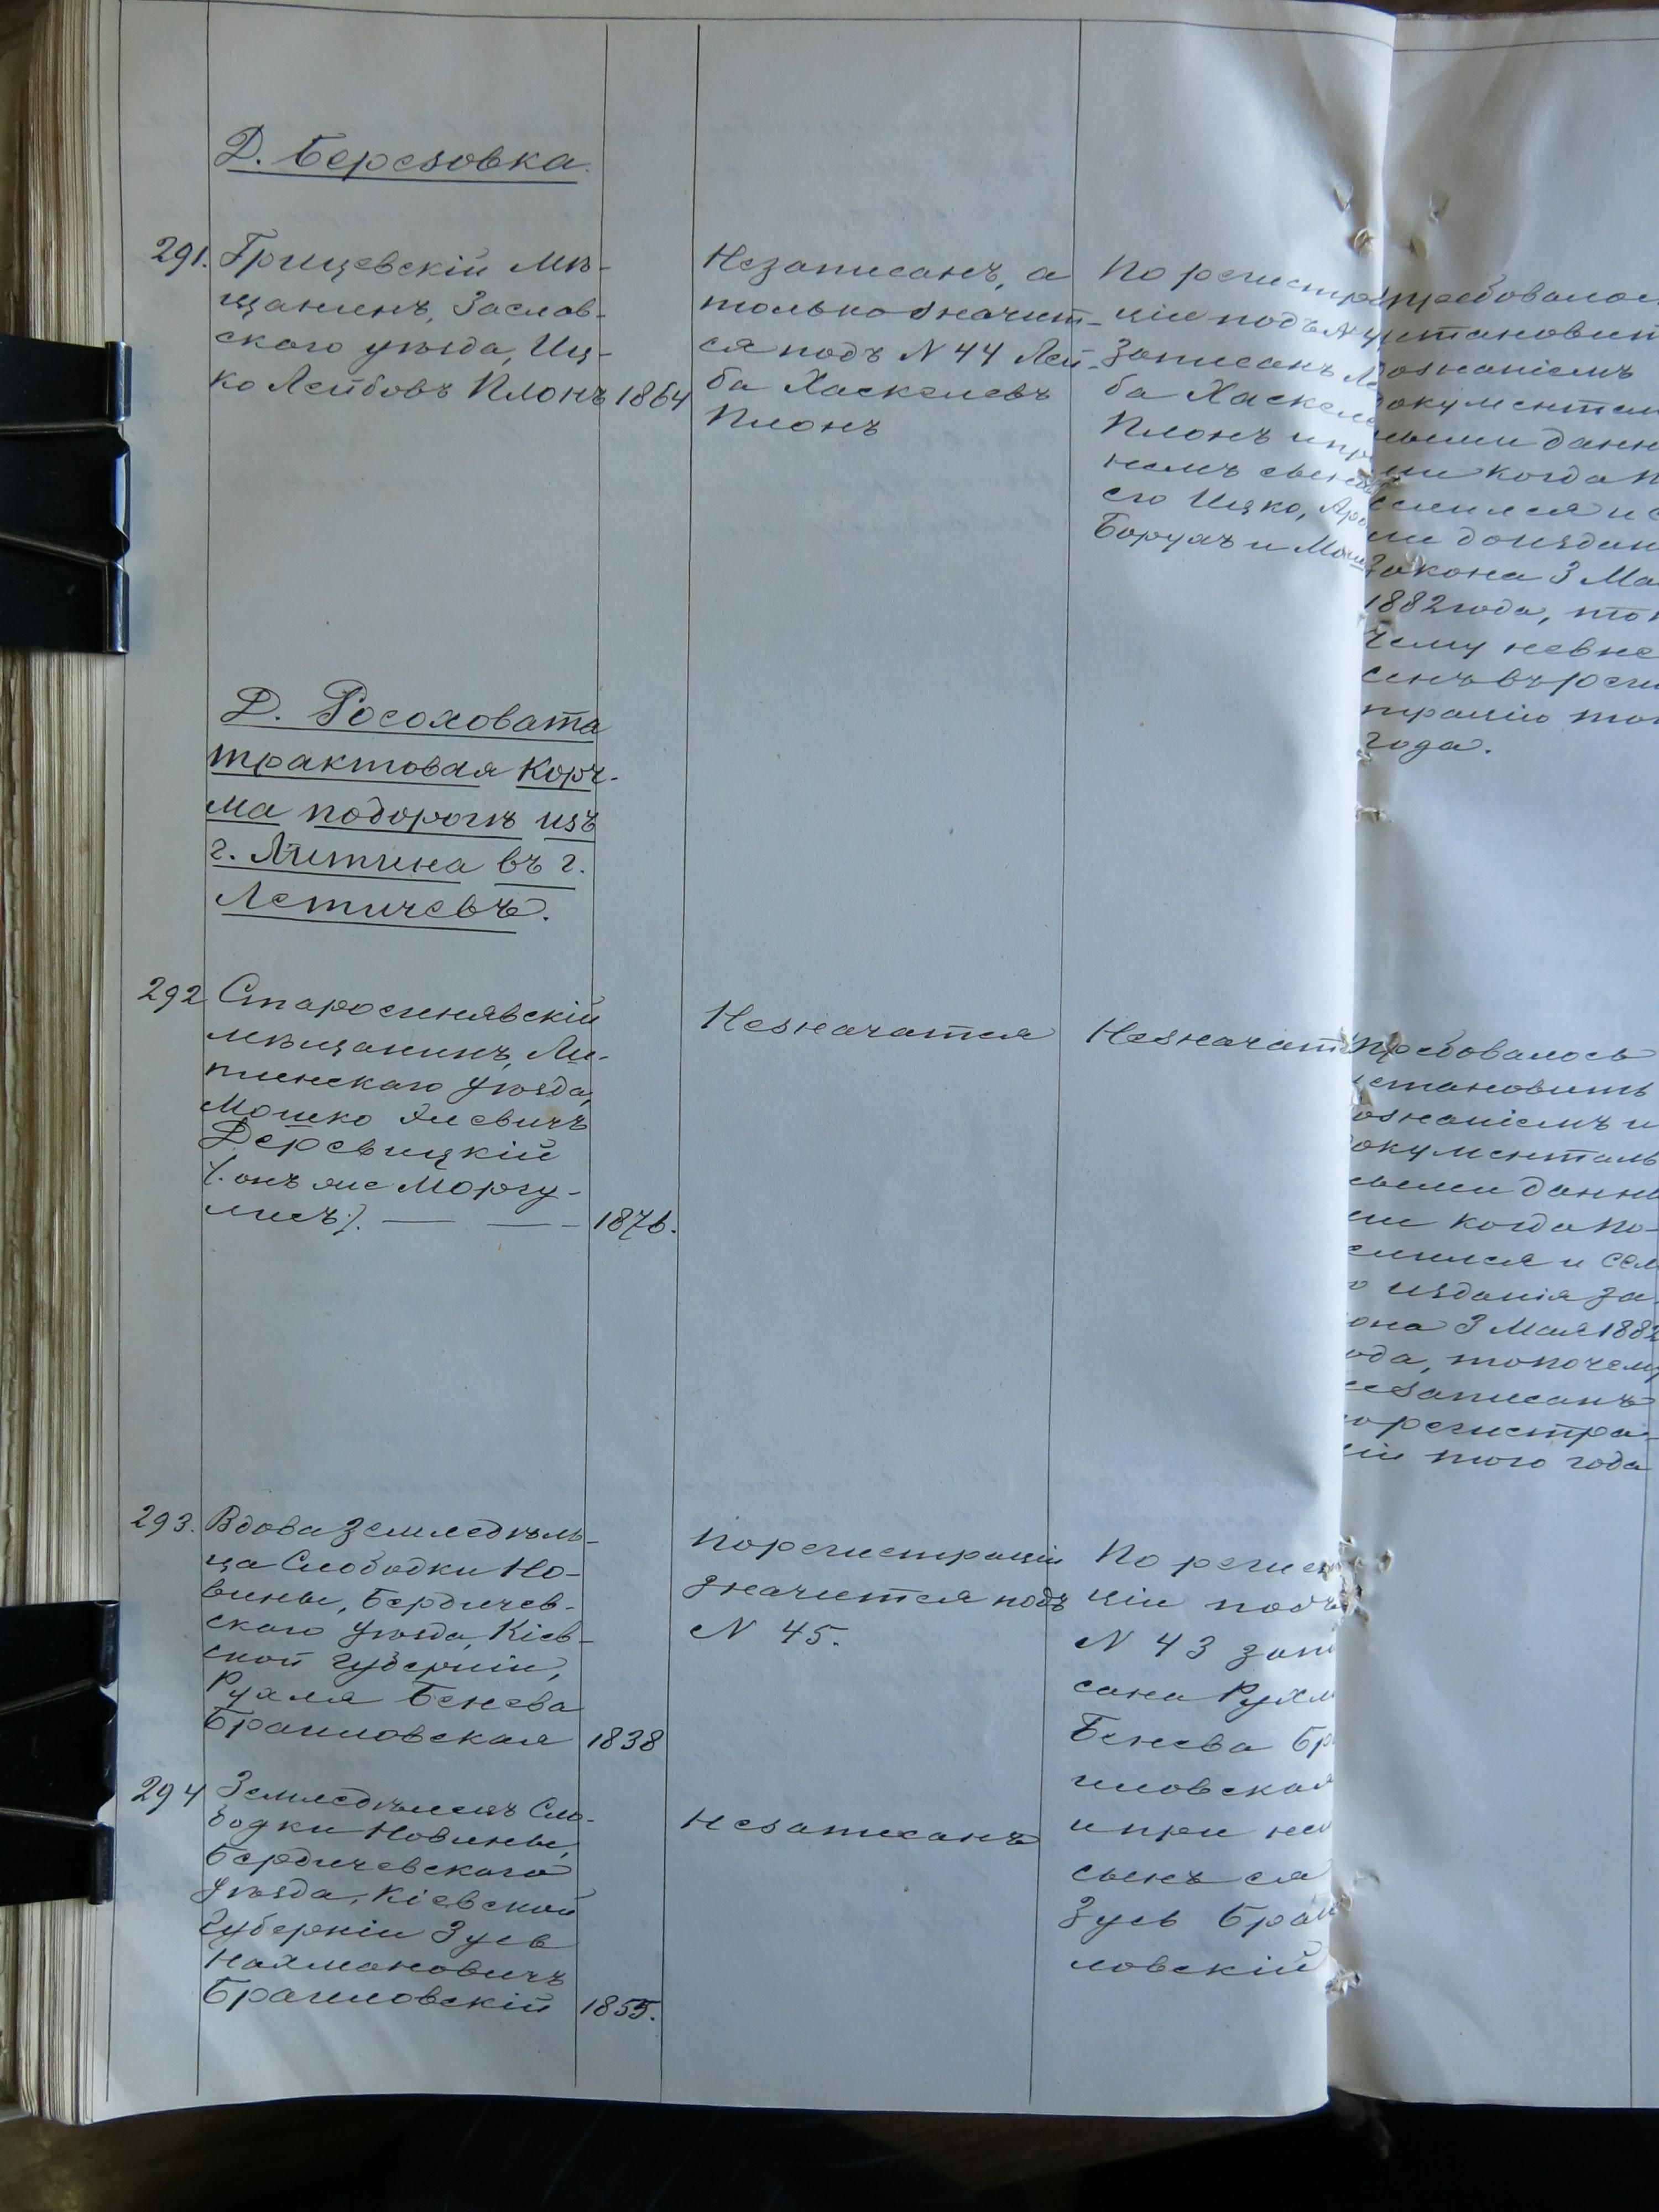 Д. Березовка.
291. Грицевскій мѣ-
щанинъ, Заслав-
скаго уѣзда, Иц-
ко Лейбовъ Плонъ 1864
Незаписанъ, а
только значит-
ся подъ N 44 Лей-
ба Хаскелевъ
Плонъ
По регистра
ціи подъ N 4
записанъ Ле
ба Хаскеле
Плонъ и пр
немъ сыновья
его Ицко, Аро
Борухъ и Мош
требовалос
установит
дознаніемъ
документал
ными данн
ми когда п
селился и е
ли до издан
закона 3 Ма
1882 года, то п
чему невне
сенъ въ реги
трацію тог
года.
Д. Росоховата
трактовая корч-
ма подорогѣ изъ
г. Литина въ г.
Летичевъ.
292 Старосинявскій
мѣщанинъ, Ли-
тинскаго уѣзда,
Мошко Элевичъ
Деревицкій
(. онъ же Моргу-
лисъ.). — — 1876.
Незначатся
Незначат
Требовалось
установить
дознаніемъ и
документаль
ными данны
ми когда по-
селился и есл
о изданія за-
кона 3 Мая 1882
года, то почему
незаписанъ
по регистра-
ціи того года
293. Вдова земледѣль-
ца Слободки Но-
вины, Бердичев-
скаго уѣзда, Кіев-
ской губерніи,
Рухля Бенева
Браиловская 1838
По регистраціи
значится подъ
N 45.
По регис
ціи подъ
N 43 запи
сана Рухл
Бенева Бр
иловская
и при ней
сынъ ея
Зусь Браи
ловскій
294 Земледѣлецъ Сло-
бодки Новины,
Бердичевскаго
уѣзда, Кіевской
губерніи Зусь
Нахмановичъ
Браиловскій 1855.
Незаписанъ